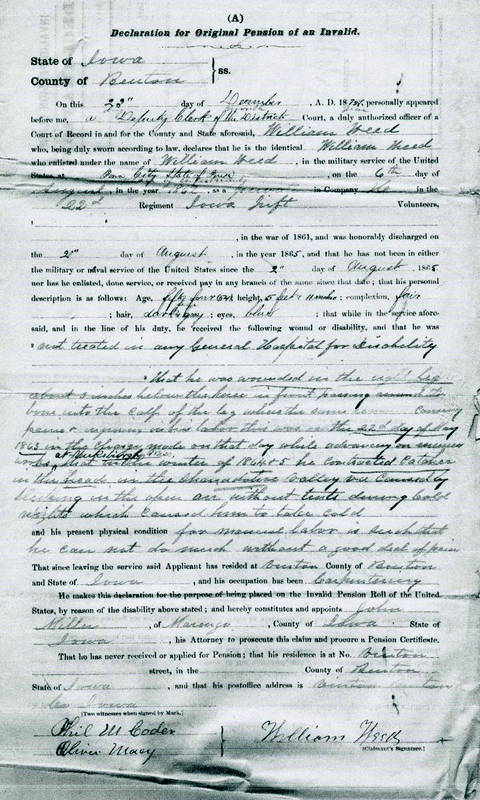 (A)
Declaration for Original Pension of an Invalid.
State of Iowa
County of Benton } ss.
On this 23" day of December, A. D. 187 personally appeared
before me, a Deputy Clerk of the District Court, a duly authorized officer of a
Court of Record in and for the County and State aforesaid, William Weed
who, being duly sworn according to law, declares that he is the identical William Weed
who enlisted under the name of William Weed, in the military service of the United
States at Iowa City State of Iowa, on the 6th day of
August, in the year 1862, as a in Company in the
22d Regiment Iowa Inft Volunteers,
, in the war of 1861, and was honorably discharged on
the 2" day of August, in the year 1865, and that he has not been in either
the military or naval service of the United States since the 2" day of August 1865
nor has he enlisted, done service, or received pay in any branch of the same since that date; that his personal
description is as follows: Age, fifty four (54), height, 5 feet 11 inches; complexion, fair
; hair, dark gray; eyes, blue; that while in the service afore-
said, and in the line of his duty, he received the following wound or disability, and that he was
not treated in any General Hospital for Disability
That he was wounded in the right leg
about 5 inches below the knee in front passing around the
bone into the calf of the leg where the same causing
pain & in his labor this was on the 22d day of May
1863 in the Charge made on that day while advancing on enemies
works at Vicksburgh Miss. that in the winter of 1864 & 5 he contracted Catarrh
in the head in the Shanadoah Valley Va Caused by
in the open air without tents during Cold
nights which Caused him to take cold
and his present physical condition for manual labor is such that
he can not do much without a good deal of pain
That since leaving the said service said Applicant has resided at Vinton County of Benton
and State of Iowa, and his occupation has been Carpentering
He makes this declaration for the purpose of being placed on the Invalid Pension Roll of the United
States, by reason of the disability above stated; and hereby constitutes and appoints John
Miller, of Marengo, County of Iowa State of
Iowa, his Attorney to prosecute this claim and procure a Pension Certificate.
That he has never received or applied for Pension; that his residence is at No. Vinton
street, in the County of Benton
State of Iowa, and that his postoffice address is Vinton Benton
Co Iowa
[Two witnesses when signed by Mark.]
Phil M Coder
Oliver Macy
William Weed
[Claimant's Signature.]